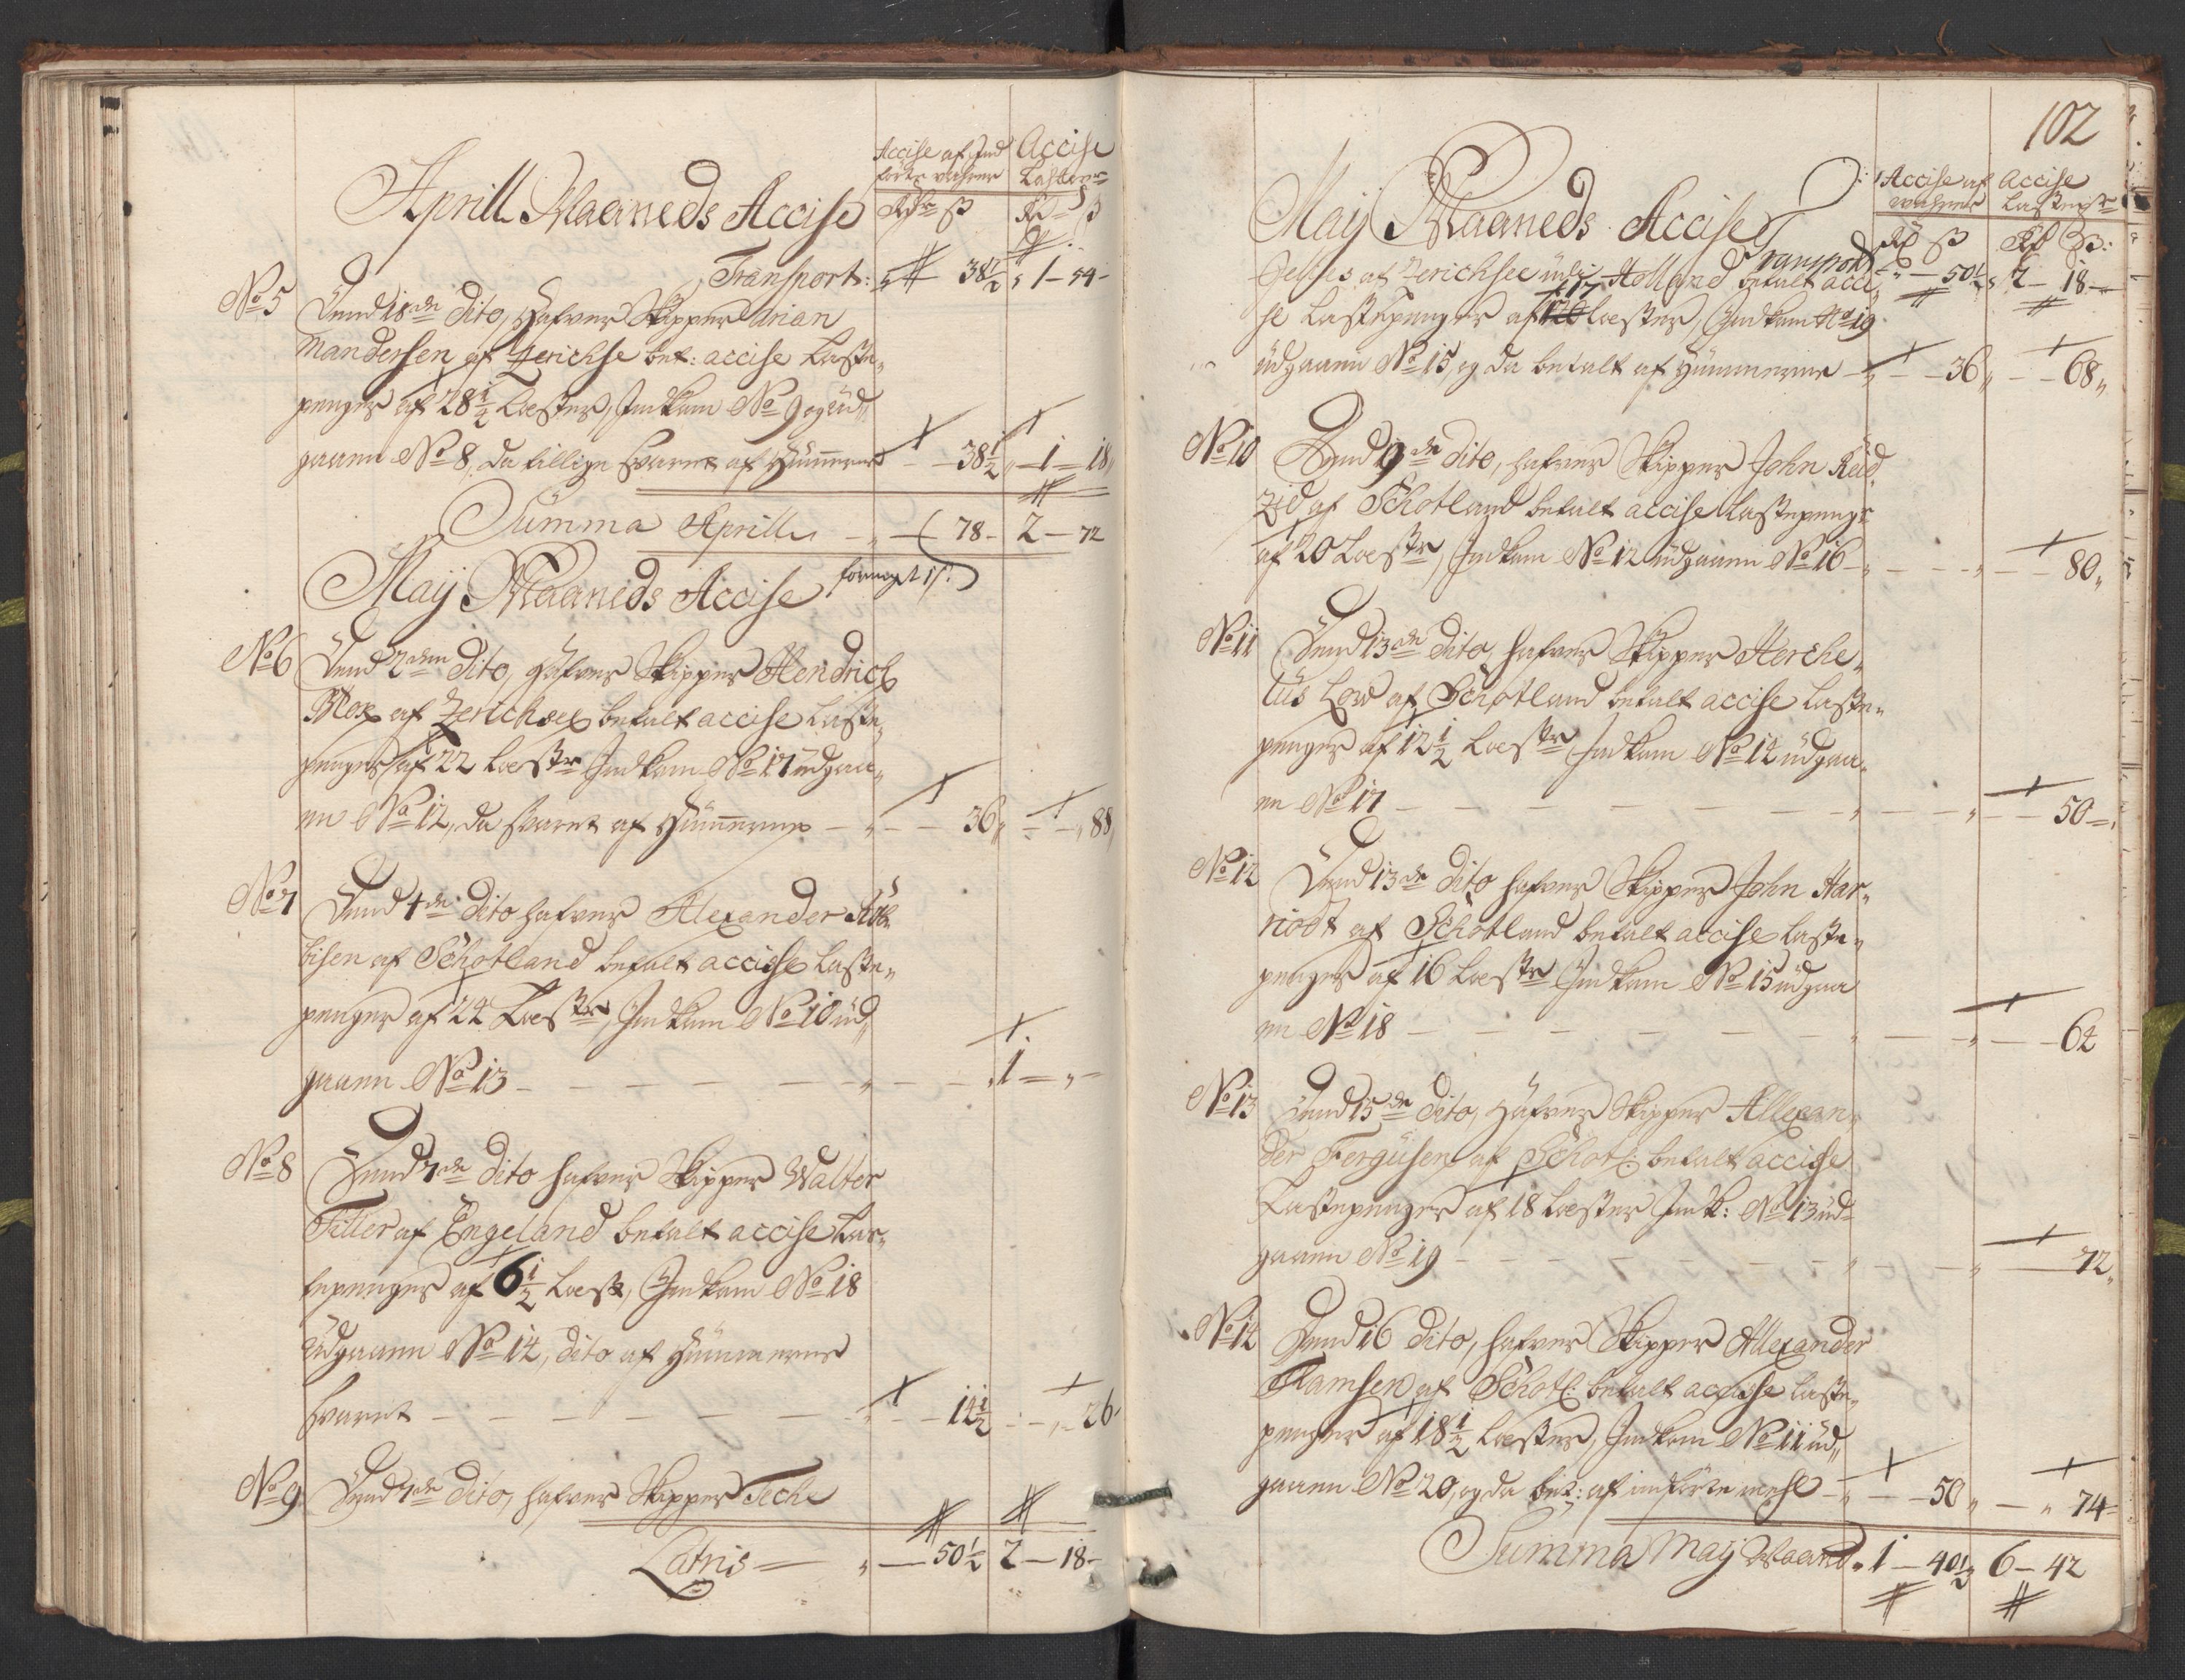 Accise af Ind Accise
førte wahrer Laster
Aprill Maaneds Accise Rdr ß Rd ß
Transport: 38½ 1-54-
No 5 Dend 18de dito, Hafver Skipper Arian
Mandersen af Zerichse bet: accise Laste
penger af 28½ Læster, Indkom No 9 og üd
gaaen No 8, da tillige svaret af Hümmerne 38½ 1-18
Summa Aprill 78- 2-72
Maij Maaneds Accise
No 6 Dend 2den dito, Hafver Skipper Hendrich
Blox af Zerichsee betalt accise Laste
penger af 22 Læstr Indkom No 17 üdgaa
en No 12, da svaret af Hümmerne 36 88
No 7 Dend 4de dito hafver Alexander Rob
bisen af Schotland betalt accisse Laste
penger af 24 Læstr, Indkom No 10 üd
gaaen No 13 1-
No 8 Dend 7de dito hafver Skipper Walter
Titler af Engeland betalt accise Las
tepenger af 6½ Læst, Indkom No 18
üdgaaen No 14, dito af Hümmerne
svaret 14½ 26
No 9 Dend 7de dito, hafver Skipper Teche
Latris 50½ 2-18-
102
Accise af Accise
wahrer Lastepr
Maij Maaneds Accise Rd ß Rd ß:
Transport 50½ 2-18-
Jelles af Zerichsee üdi Holland betalt acci
17
se Lastepenger af Læster, Indkom No 19
üdgaaen No 15 og da betalt af Hümmerne 36 68
No 10 Dend 9de dito, hafver Skipper John Reid
Zid af Schotland betalt accise Lastepengr
af 20 Læstr, Indkom No 12 üdgaaen No 16 80
No 11 Dend 13de dito, hafver Skipper Herche
lüs Low af Schotland betalt accise Laste
penger af 12½ Læstr Indkom No 14 üdgaa
en No 17 50
No 12 Dend 13de dito hafver Skipper John Har
riodt af Schotland betalt accise Laste
penger af 16 Læstr Indkom No 15 üdgaa
en No 18 64
No 13 Dend 15de dito, Hafver Skipper Allexan
der Fergüsen af Schotl: betalt accise
Lastepenger af 18 Læster Indk: No 13 üd
gaaen No 19 72
No 14 Dend 16 dito, hafver Skipper Allexander
Ramsen af Schotl: betalt accisse Laste
penger af 18½ Læster, Indkom No 11 üd
gaaen No 20, og da bet: af indførte mehl 50 74
Summa Maij Maand 1-40½ 6-42